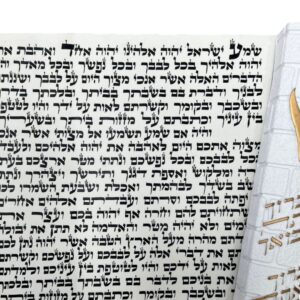 שמע ישראל יהוה אלהינו יהוה אחד ואהבת את
יהוה אלהיך בכל לבבך ובכל נפשך ובכל מאדך והיו
הדברים האלה אשר אנכי מצוך היום על לבבך ושננתם
לבניך ודברת בם בשבתך בביתך ובלכתך בדרך
ובשכבך ובקומך וקשרתם לאות על ידך והיו לטטפת
בין עיניך וכתבתם על מזזות ביתך ובשעריך
והיה אם שמע תשמעו אל מצותי אשר אנכי
מצוה אתכם היום לאהבה את יהוה אלהיכם ולעבדו
בכל לבבכם ובכל נפשכם ונתתי מטר ארצכם בעתו
ומלקוש ואספת דגנך ותירשך ויצהרך ונתתי
עשב בשדך לבהמתך ואכלת ושבעת השמרו לכם
יפתה לבבכם וסרתם ועבדתם אלהים אחרים
והשתחויתם להם וחרה אף יהוה בכם ועצר את
השמים ולא יהיה מטר והאדמה לא תתן את יבולה
ואבדתם מהרה מעל הארץ הטבה אשר יהוה נתן לכם
ושמתם את דברי אלה על לבבכם ועל נפשכם וקשרתם
אתם לאות על ידכם והיו לטוטפת בין עיניכם ולמדתם
אתם את בניכם לדבר בם בשבתך בביתך ובלכתך
בדרך ובשכבך ובקומך וכתבתם